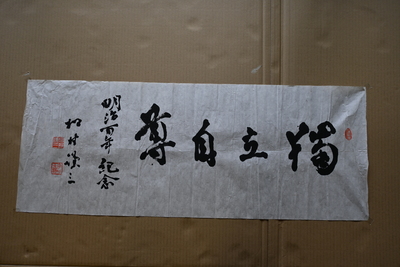 獨立自尊
明治百年紀念
松村謙三